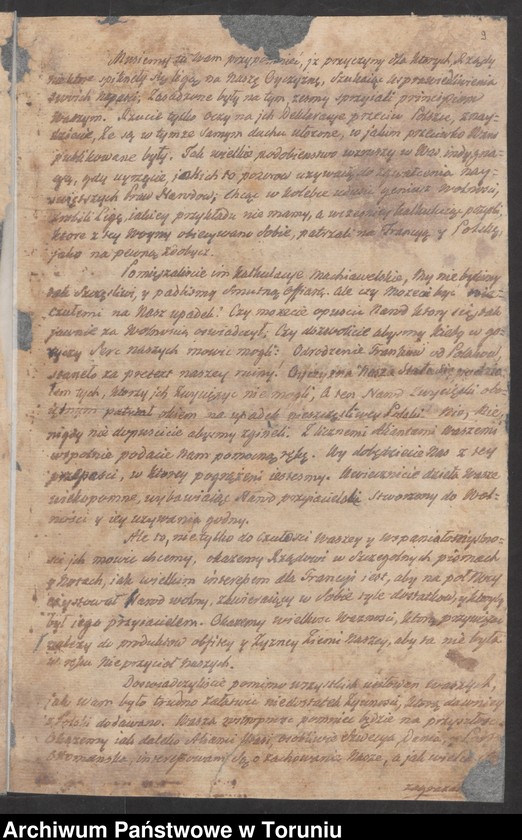 9
Musiemy tu wam przypomnieć, iż przyczyny dla ktorych, Rządy
na Naszę Oyczyznę, Szukaiąc usprawiedliwienia
swoich , zasadzone były na tym, żeśmy sprzyiali principiom
Waszym. Rzućcie tylko oczy na ich Deklaracye przeciw Polszcze, znay-
dziecie, że są w tymże samym duchu ułożone, w iakim przeciwko Wam
publikowane były. Tak wielkie podobieństwo wzruszy w Was indygna-
cyą, gdy uyrzycie iakich to pozorow używaią do zgwałcenia nay-
świętszych Praw Narodow; Chcąc w kolebce udusić geniusz Wolności,
zrobili Ligę, iakiey przykładu nie mamy, a wszyscy kalkuluiąc zyski,
ktore z tey Woyny obiecywano sobie, patrzali na Francyą y Polskę,
jako na pewną zdobycz.
Pomięszaliście im kalkulacye Machiawelskie, My nie byliśmy
tak Szczęśliwi, y padliśmy smutną offiarą. Ale czy możecie być
czułemi na Nasz upadek? Czy możecie opuścić Narod ktory się tak
jawnie za Wolnością oświadczył. Czy dozwolicie abyśmy kiedy w go-
ryczy Serc naszych mowić mogli: Odrodzenie Frankow od Polakow,
stanęło za pretext naszey ruiny. Oyczyzna Nasza stała się
łem tych, ktorzy ich zwyciężyć nie mogli, A ten Narod Zwycięski obo-
iętnym patrzał okiem na upadek nieszczęśliwey Polski. Nie, Nie,
nigdy nie dopuścicie abyśmy zginęli. Z licznemi Aliantami Waszemi
wspolnie podacie Nam pomocną rękę. Wy dobędziecie Nas z tey
przepaści, w ktorey pogrążeni iesteśmy. Uwiecznicie dzieła Wasze
wiekopomne, wybawiaiąc Narod przyiacielski stworzony do Wol-
ności y iey używania godny.
Ale to, nie tylko do Czułości Waszey y wspaniałomyślno-
ści ich mowić chcemy, okażemy Rządowi w Szczegolnych pismach
y Notach, iak wielkim interesem dla Francyi iest, aby na pułnocy
exystował Narod wolny, zawieraiący w Sobie tyle dostatkow, y ktoryby
był iego przyiacielem. Okażemy wielkość Ważności, ktorą przywiązać
należy do produktow obfitey y żyzney Ziemi Naszey, aby ta nie była
w ręku Nieprzyiacioł Naszych.
Doświadczyliście pomimo wszystkich usiłowań waszych,
jak wam było trudno załatwić niedostatek żywności, ktorą dawniey
z Polski dodawano. Wasza roztropność pomnieć będzie na przyszłość.
Okażemy iak daleko Alianci Wasi, osobliwie Szwecya, Dania, y Porta
Ottomańska, interessowani są o zachowanie Nasze, a jak wielkie
zagraża
Archiwum Państwowe w Toruniu